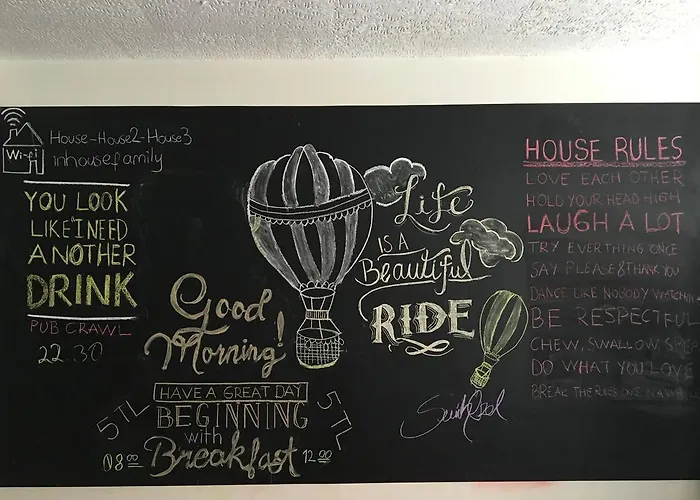 House-House2-House3
Wi-fi
inhousefamily
YOU LOOK
LIKE I NEED
ANOTHER
DRINK
PUB CRAWL
22.30
Good
Morning!
HAVE A GREAT DAY
BEGINNING
with
Breakfast
5TL
5TL
08:00
12:00
Life
IS A
Beautiful
RIDE
HOUSE RULES
LOVE EACH OTHER
HOLD YOUR HEAD HIGH
LAUGH A LOT
TRY EVERTHING ONCE
SAY PLEASE & THANK YOU
DANCE LIKE NOBODY WATCHIN
BE RESPECTFUL
CHEW, SWALLOW,
DO WHAT YOU LOVE
BREAK THE RULES ONE IN A